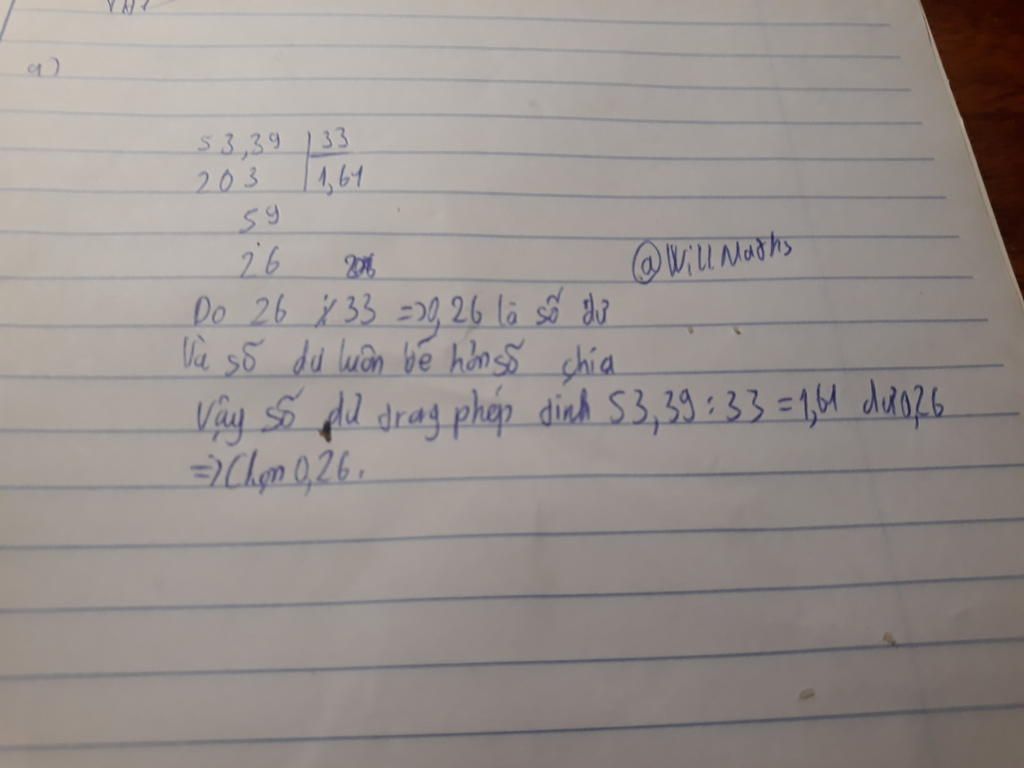 a)
53,39 | 33
203 | 1,61
59
26
@WillMaths
Do 26 ⁒ 33 => 0,26 là số dư
Và số dư luôn bé hơn số chia
Vậy số dư trong phép tính 53,39 : 33 = 1,61 dư 0,26
=> Chọn 0,26.